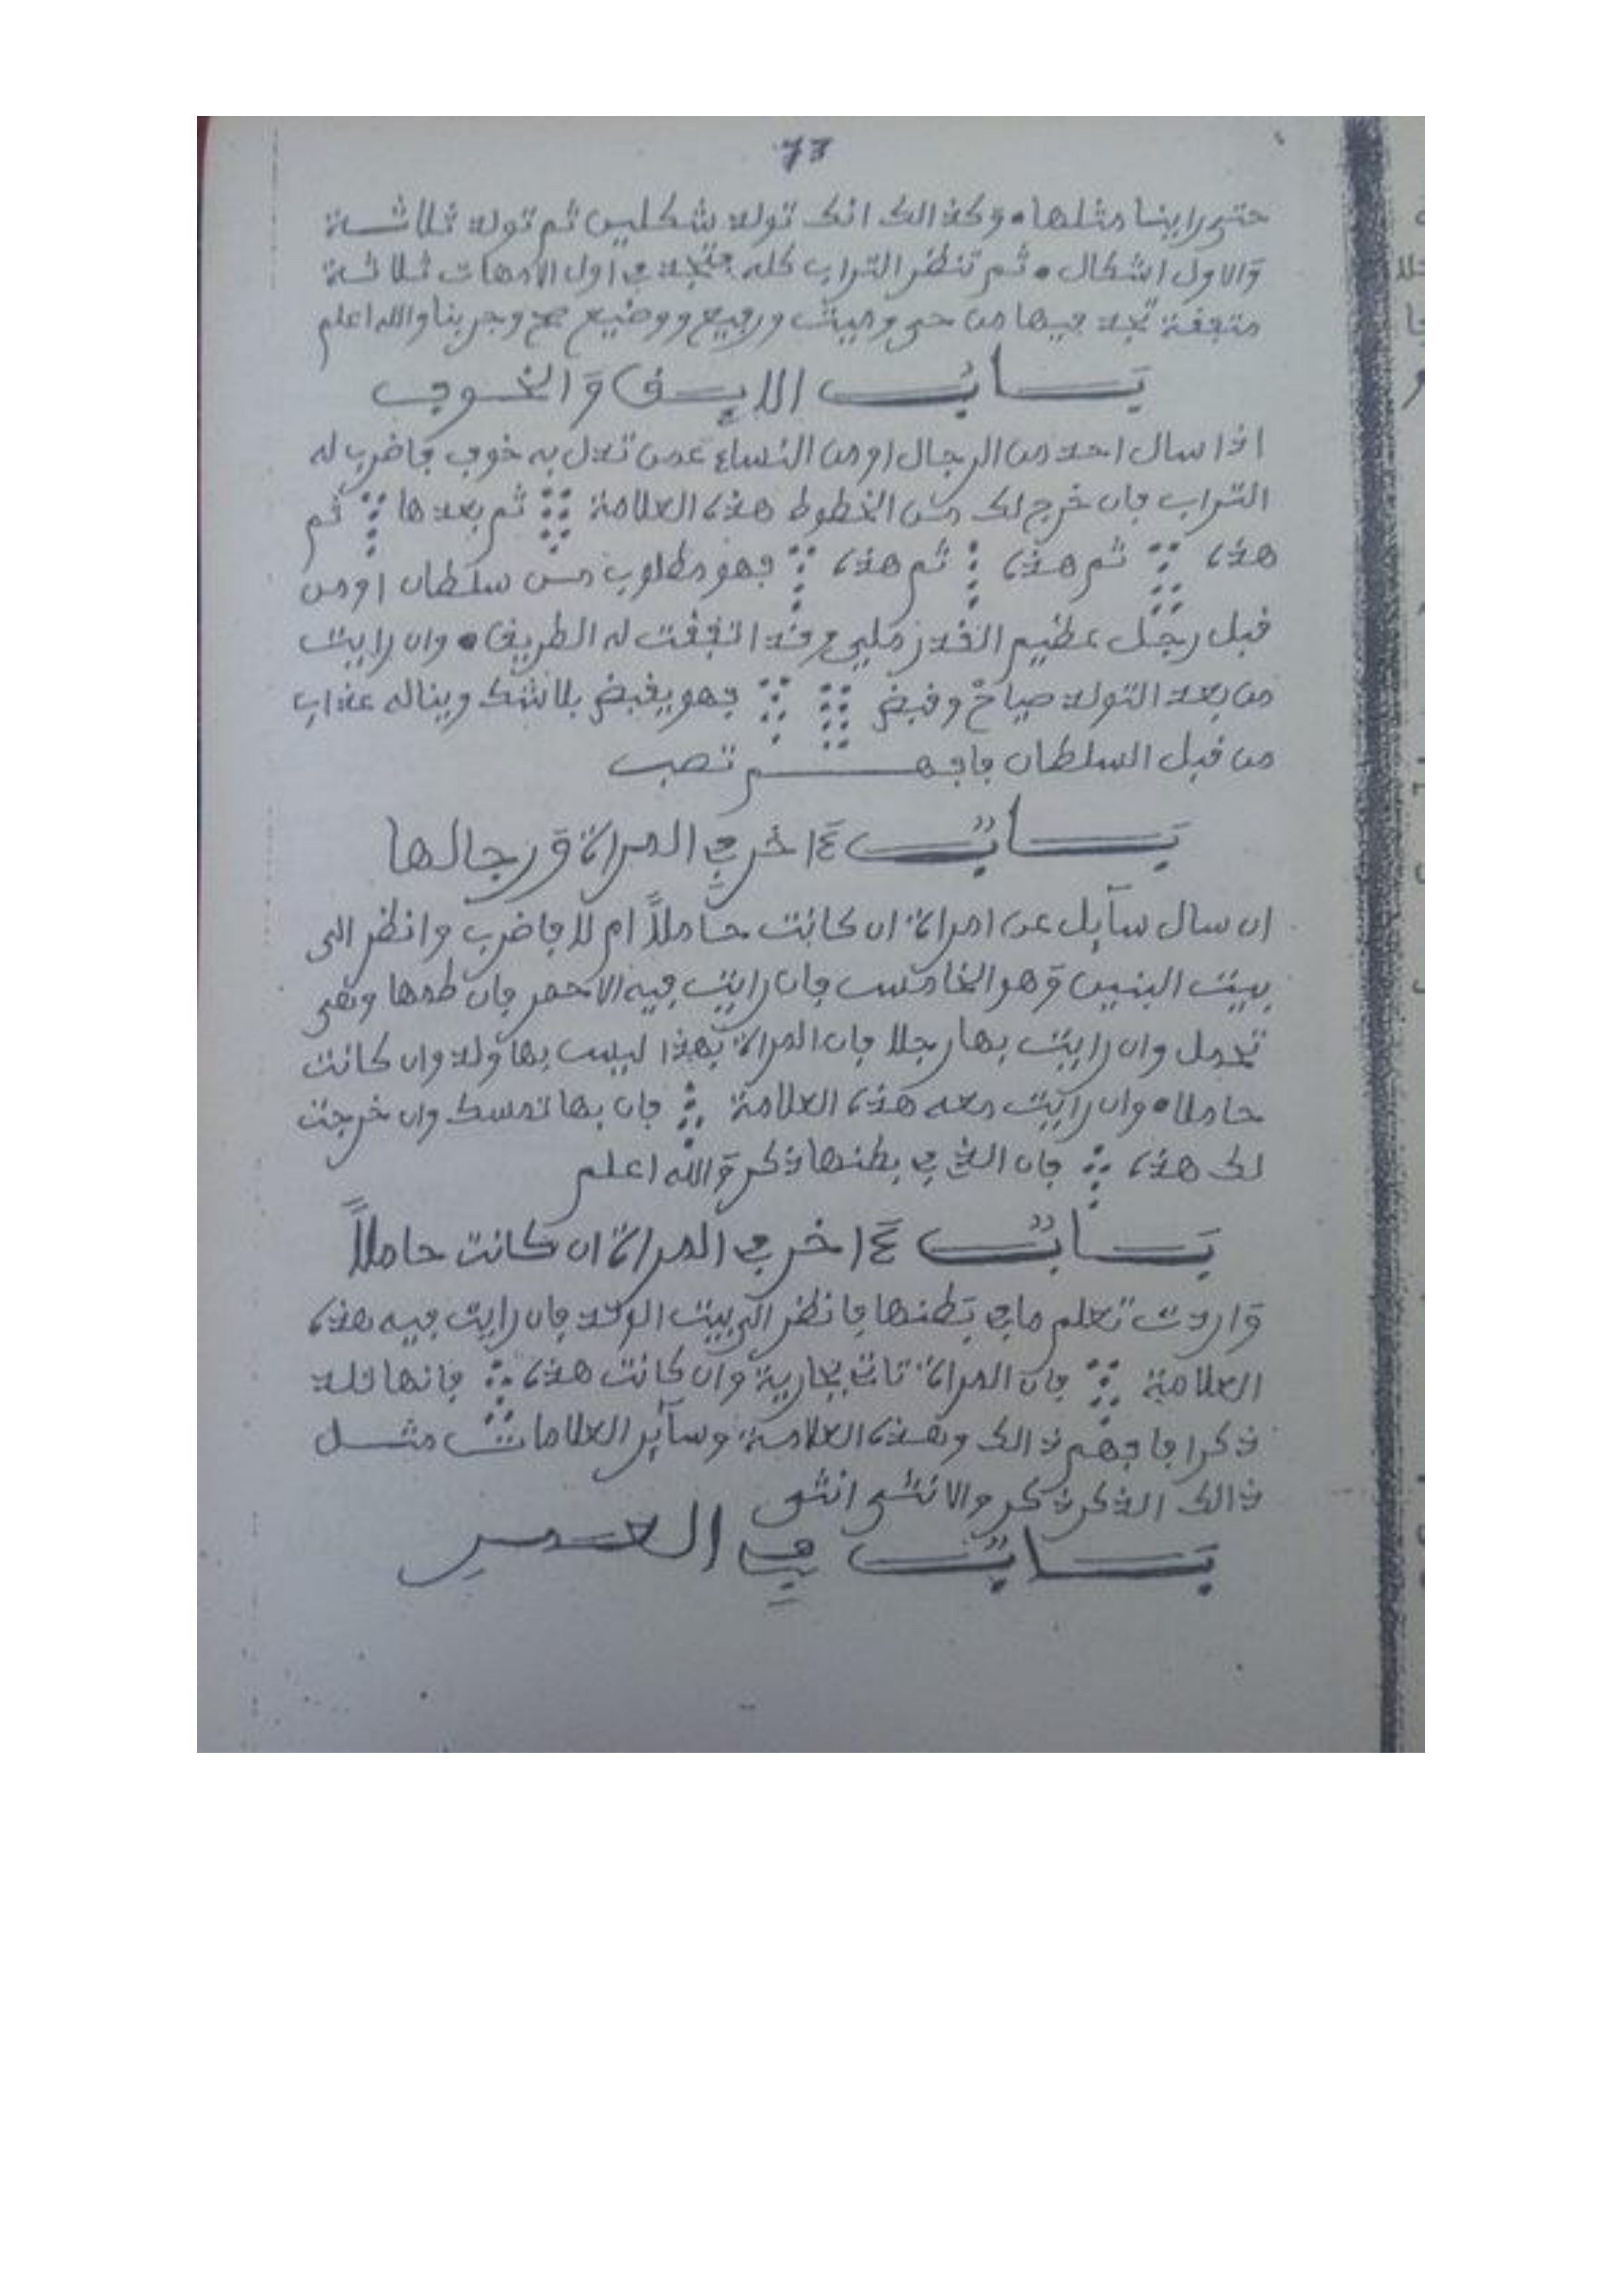 73
حتى راينا مثلها • وكذالك انك تولد شكلين ثم تولد ثلاثة
والاول اشكال • ثم تنظر التراب كله فتجد في اول الامهات ثلاثة
متفقة تجد فيها من حي وميت ورفيع ووضيع صح وجربنا والله اعلم
بــاب الابــق والخــوف
اذا سال احد من الرجال او من النساء عمن به خوف فاضرب له
التراب فان خرج لك من الخطوط هذه العلامة ثم بعدها ثم
هذه ثم هذه ثم هذه فهو مطلوب من سلطان او من
قبل رجل عظيم القدر وقد اتفقت له الطريق • وان رايت
من بعد التولد صياح وقبض فهو يقبض بلا شك ويناله عذاب
من قبل السلطان فافهــم تصب
بــاب ءاخر في المراة ورجالها
ان سال سآيل عن امراة ان كانت حاملاً ام لا فاضرب وانظر الى
بيت البنين وهو الخامس فان رايت فيه الاحمر فان
تحمل وان رايت بها رجلا فان المراة بهذا ليس بها ولد وان كانت
حاملا • وان رايت معه هذه العلامة فان بها تمسك وان خرجت
لك هذه فان الذي في بطنها ذكر والله اعلم
بــاب ءاخر في المراة ان كانت حاملاً
واردت تعلم ما في بطنها فانظر الى بيت الولد فان رايت فيه هذه
العلامة فان المراة تات بجارية وان كانت هذه فانها تلد
ذكرا فافهم ذالك وهذه العلامة وسآير العلامات مثــل
ذالك الذكر ذكر والانثى انثى
بــاب في العمــر